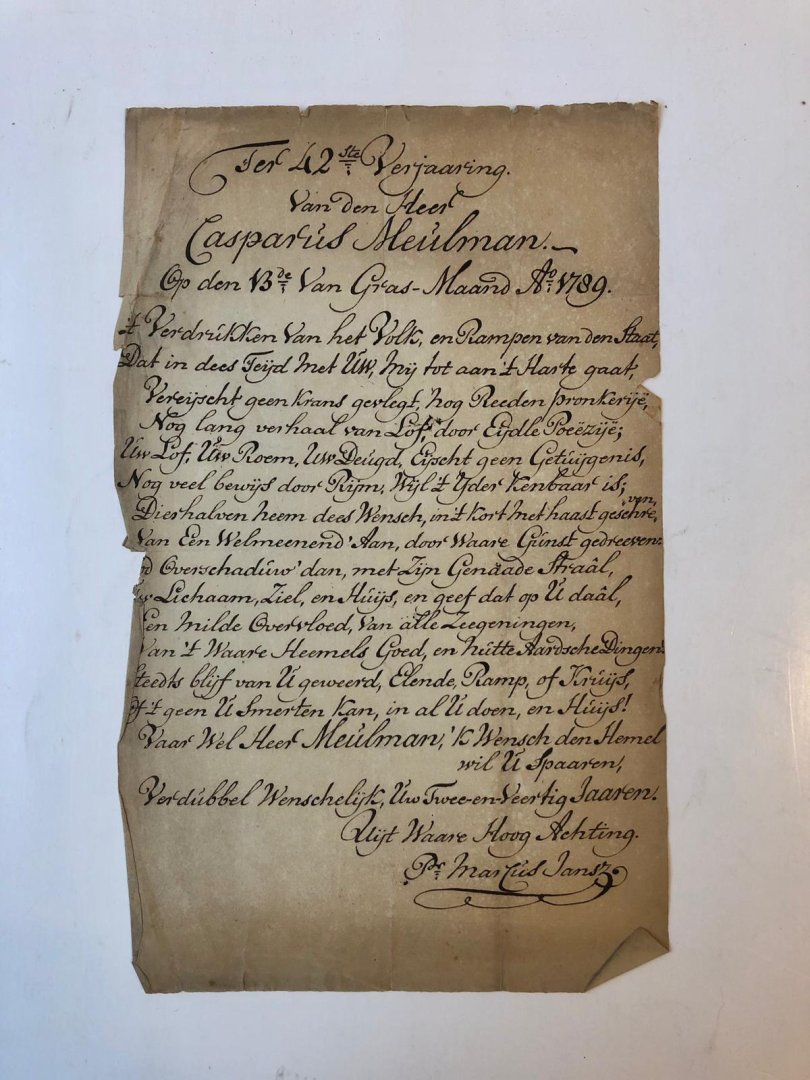 Ter 42ste Verjaaring.
Van den Heer
Casparus Meulman.
Op den 13de Van Gras-Maand Ao 1789.
't Verdrukken Van het Volk, en Rampen van den Staat,
Dat in dees Teijd Met UW, Mij tot aan 't Harte gaat,
Vereijscht geen Krans gevlegt, nog Reeden pronkerijë,
Nog lang verhaal van Lof, door Eijdle Poeëzijë;
Uw Lof, Uw Roem, Uw Deugd, Eijscht geen Getuijgenis,
Nog veel bewijs door Rijm, Wijl 't Yder Kenbaar is;
Dierhalven neem dees Wensch, in 't Kort Met haast geschre,
ven,
Van Eén Welmeenend' Aan, door Waare Gunst gedreeven:
d Overschaduw' dan, met Zijn Genaade Straâl,
Uw Lichaam, Ziel, en Huijs, en geef dat op U daâl,
Een Milde Overvloed, Van alle Zeegeningen,
Van 't Waare Heemels Goed, en nutte Aardsche Dingen.
Steedts blijf van U geweerd, Elende, Ramp, of Kruijs,
Of 't geen U Smerten Kan, in al U doen, en Huijs!
Vaar Wel Heer Meulman, 'k Wensch den Hemel
wil U Spaaren,
Verdubbel Wenschelijk, Uw Twee-en-Veertig Jaaren.
Uijt Waare Hoog Achting.
Pr Marcus Jansz.